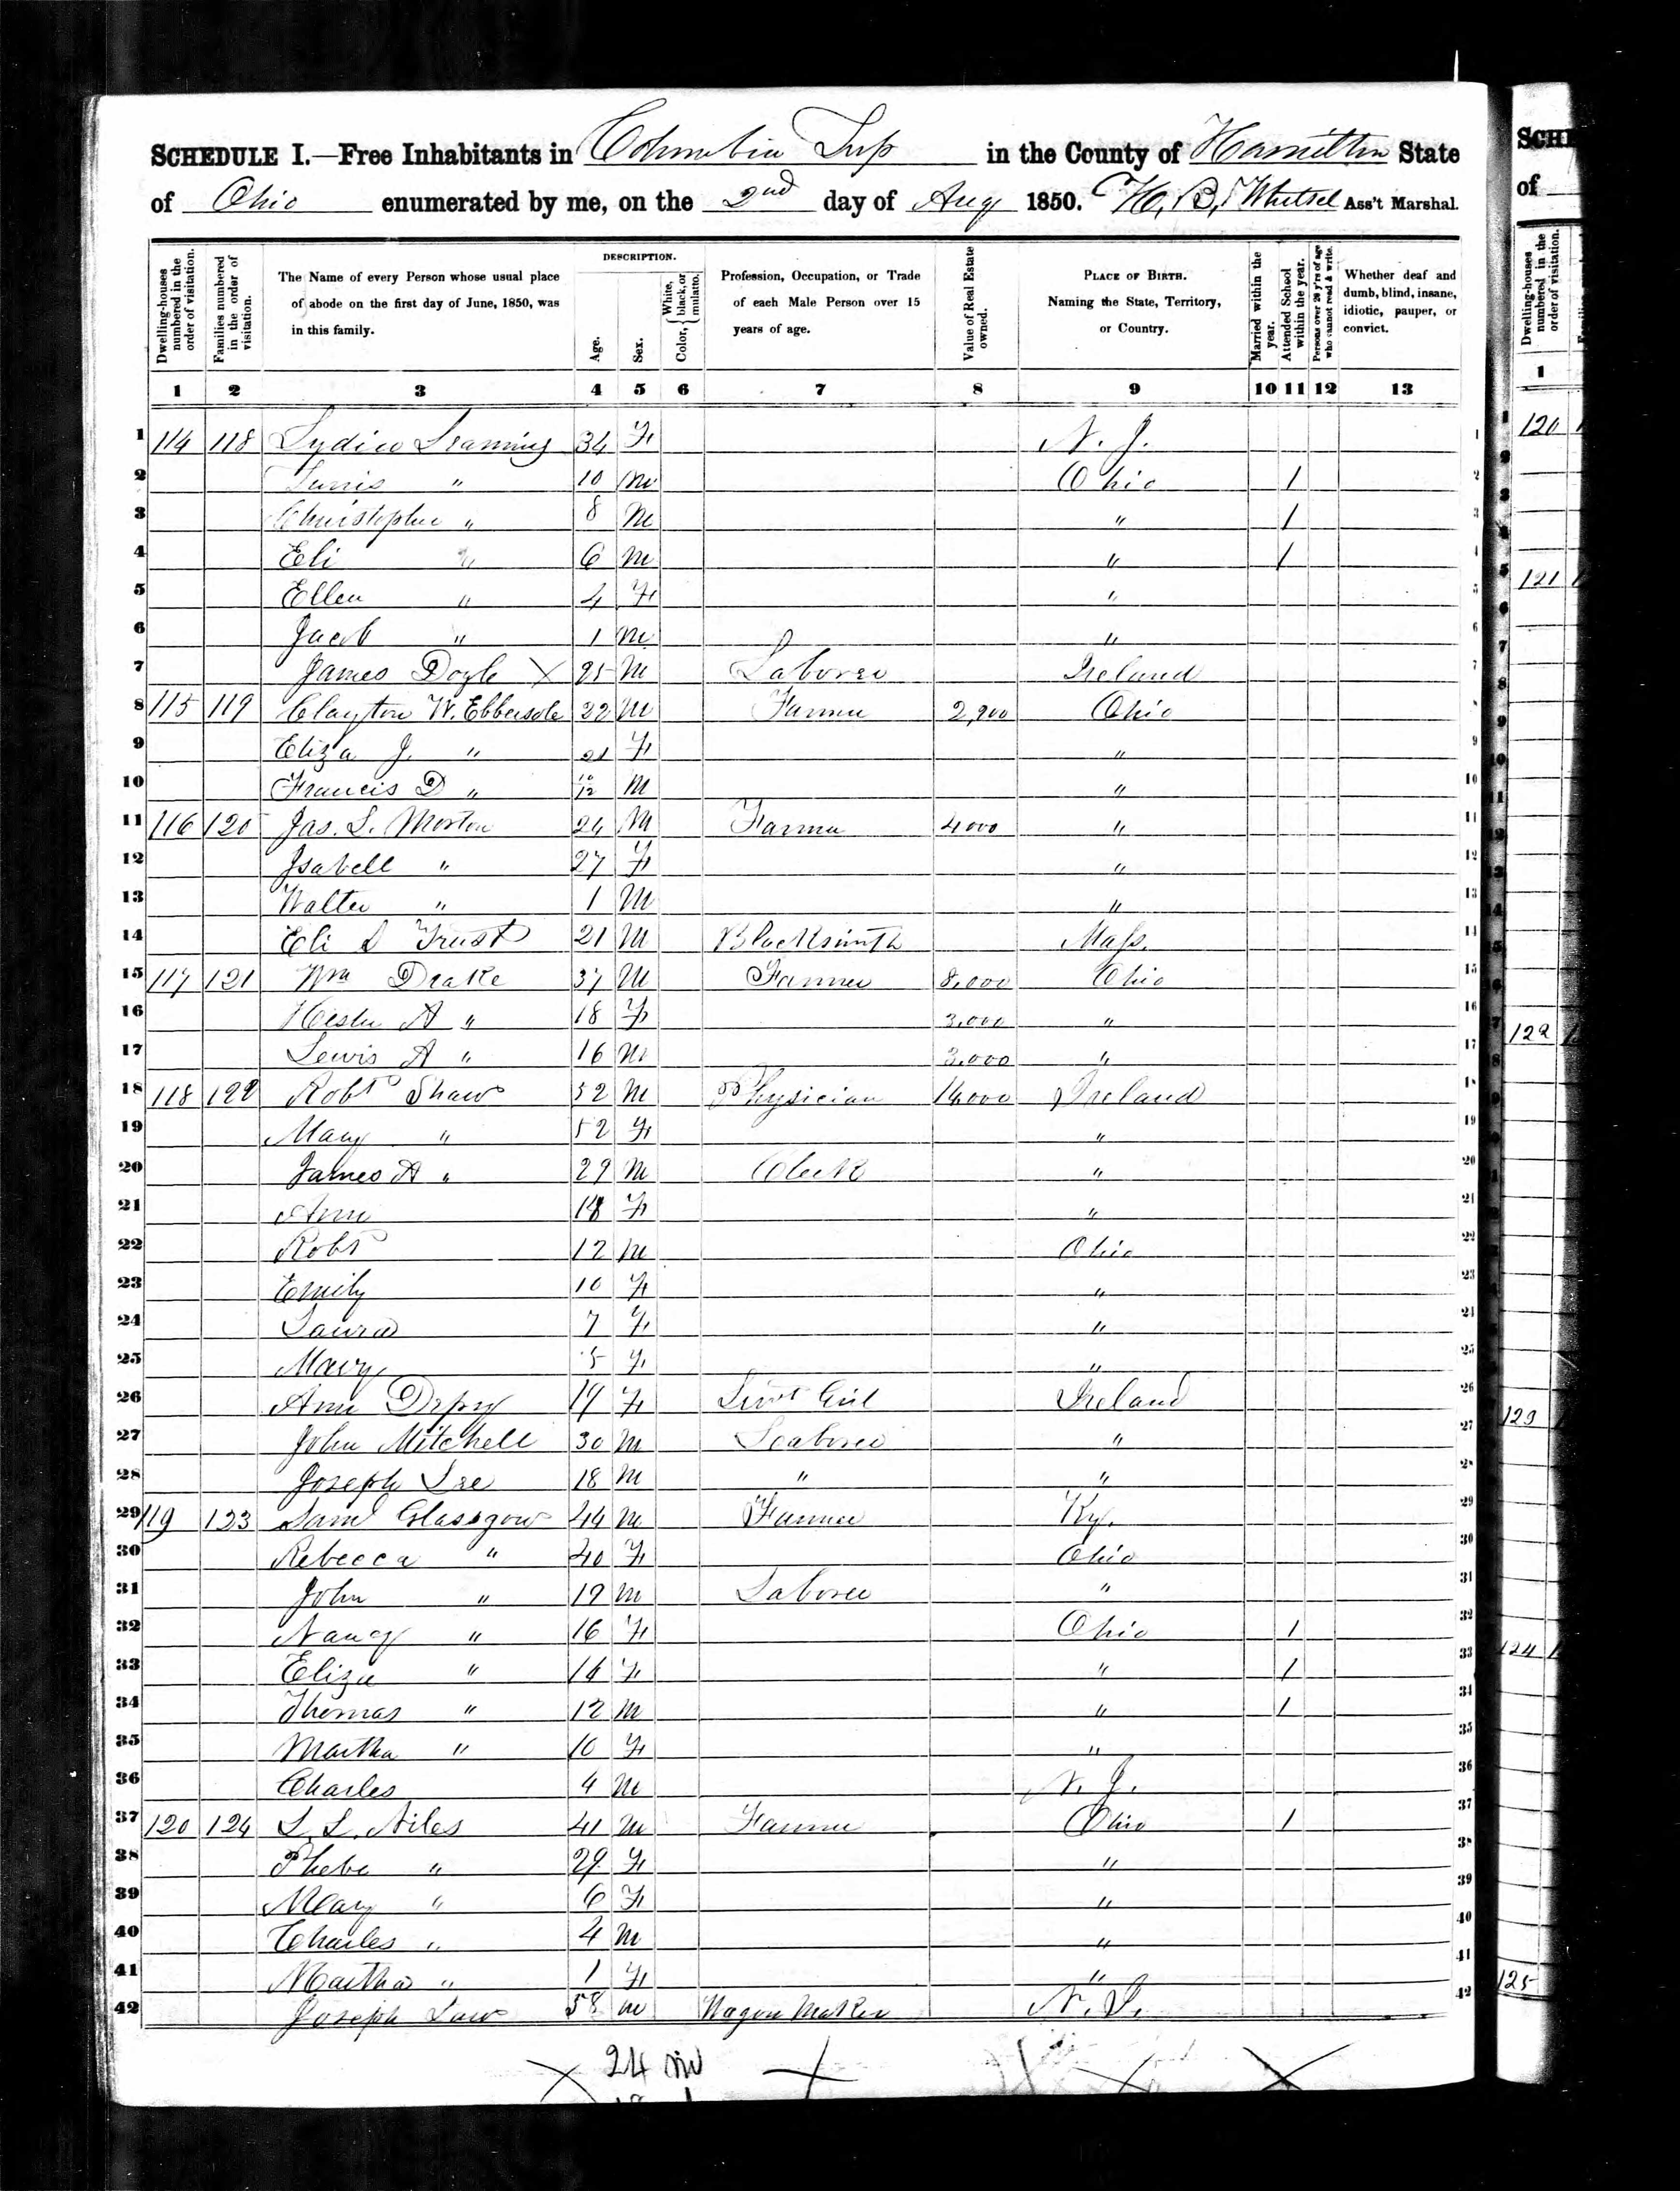 SCHEDULE I.—Free Inhabitants in Columbia Twp in the County of Hamilton State
of Ohio enumerated by me, on the 2nd day of Aug 1850. H. B. Whetsel Ass't Marshal.
Dwelling-houses numbered in the order of visitation.
Families numbered in the order of visitation.
The Name of every Person whose usual place of abode on the first day of June, 1850, was in this family.
DESCRIPTION.
Age.
Sex.
Color, { White, black, or mulatto.
Profession, Occupation, or Trade of each Male Person over 15 years of age.
Value of Real Estate owned.
PLACE OF BIRTH. Naming the State, Territory, or Country.
Married within the year.
Attended School within the year.
Persons over 20 y'rs of age who cannot read & write.
Whether deaf and dumb, blind, insane, idiotic, pauper, or convict.
1 2 3 4 5 6 7 8 9 10 11 12 13
1 114 118 Lydia Leaming 34 F N. J. 1
2 " 10 M Ohio 1 2
3 Christopher " 8 M " 1 3
4 Eli " 6 M " 1 4
5 Ellen " 4 F " 5
6 Jacob " 1 M " 6
7 James Doyle X 25 M Laborer Ireland 7
8 115 119 Clayton W. Ebbersole 22 M Farmer 2,900 Ohio 8
9 Eliza J. " 21 F " 9
10 Francis D " 10/12 M " 10
11 116 120 Jas. S. Morton 24 M Farmer 4000 " 11
12 Isabell " 27 F " 12
13 Walter " 1 M " 13
14 Eli S Trust 21 M Blacksmith Mass. 14
15 117 121 Wm Drake 37 M Farmer 8,000 Ohio 15
16 Hester A " 18 F 3,000 " 16
17 Lewis A " 16 M 3,000 " 17
18 118 122 Robt Shaw 52 M Physician 14,000 Ireland 18
19 Mary " 52 F " 19
20 James A " 29 M Clerk " 20
21 Ann 18 F " 21
22 Robt 12 M Ohio 22
23 Emily 10 F " 23
24 Laura 7 F " 24
25 Mary 5 F " 25
26 Ann 19 F Servt Girl Ireland 26
27 John Mitchell 30 M Laborer " 27
28 Joseph Lee 18 M " " 28
29 119 123 Saml Glassgow 44 M Farmer Ky. 29
30 Rebecca " 40 F Ohio 30
31 John " 19 M Laborer " 31
32 Nancy " 16 F Ohio 1 32
33 Eliza " 14 F " 1 33
34 Thomas " 12 M " 1 34
35 Martha " 10 F " 35
36 Charles 4 M N. J. 36
37 120 124 L. L. Niles 41 M Farmer Ohio 1 37
38 Phebe " 29 F " 38
39 Mary " 6 F " 39
40 Charles " 4 M " 40
41 Martha " 1 F " 41
42 Joseph Law 58 M Wagon Maker N. J. 42
24 m
SCHE
of
Dwelling-houses numbered in the order of visitation.
1
120
121
122
123
124
125